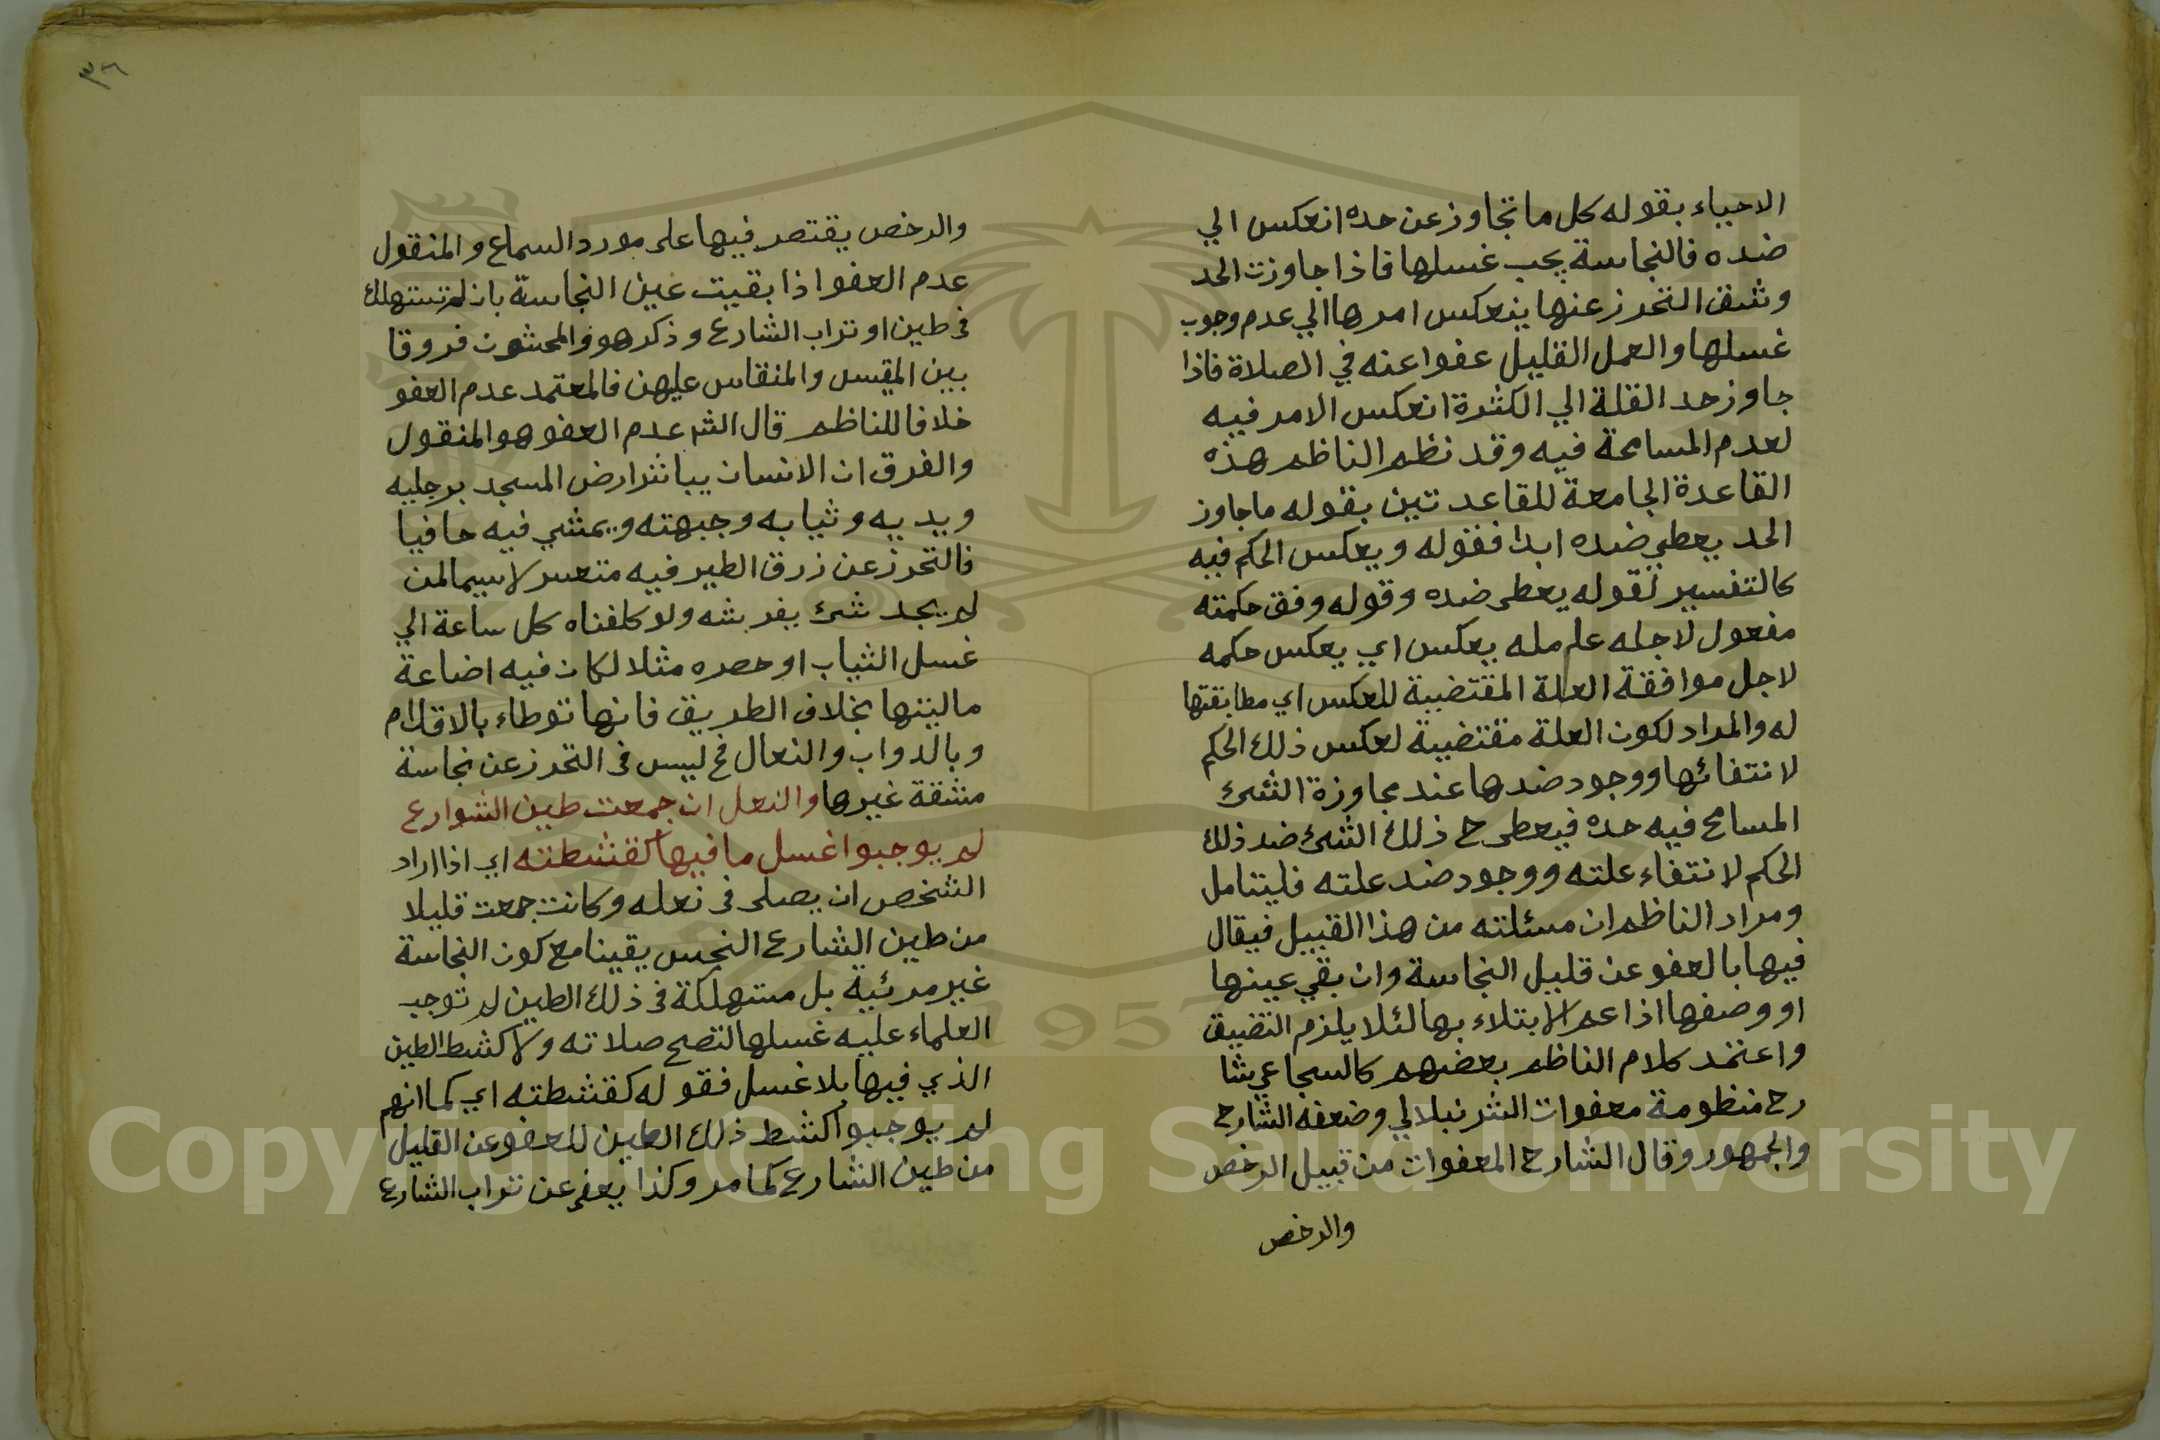 الاحياء بقوله كل ما تجاوز عن حده انعكس الي
ضده فالنجاسة يجب غسلها فاذا جاوزت الحد
وشق التحرز عنها ينعكس امرها الي عدم وجوب
غسلها والعمل القليل عفوا عنه في الصلاة فاذا
جاوز حد القلة الي الكثرة انعكس الامر فيه
لعدم المسامحة فيه وقد نظم الناظم هذه
القاعدة الجامعة للقاعدتين بقوله ما جاوز
الحد يعطي ضده ابدا فقوله ويعكس الحكم فيه
كالتفسير لقوله يعطى ضده وقوله وفق حكمته
مفعول لاجله عامله يعكس اي يعكس حكمه
لاجل موافقة العلة المقتضية للعكس اي مطابقتها
له والمراد لكون العلة مقتضية لعكس ذلك الحكم
لانتفائها ووجود ضدها عند مجاوزة الشئ
المسامح فيه حده فيعطى ح ذلك الشئ ضد ذلك
الحكم لانتفاء علته ووجود ضد علته فليتامل
ومراد الناظم ان مسئلته من هذا القبيل فيقال
فيها بالعفو عن قليل النجاسة وان بقي عينها
او وصفها اذا عم الابتلاء بها لئلا يلزم التضييق
واعتمد كلام الناظم بعضهم كالسجاعي شا
رح منظومة معفوات الشرنبلالي وضعفه الشارح
والجمهور وقال الشارح المعفوات من قبيل الرخص
والرخص
٣٦
والرخص يقتصر فيها على مورد السماع والمنقول
عدم العفو اذا بقيت عين النجاسة بان لم تستهلك
فى طين او تراب الشارع وذكر هو والمحشون فروقا
بين المقيس والمنقاس عليهن فالمعتمد عدم العفو
خلافا للناظم قال الشر عدم العفو هو المنقول
والفرق ان الانسان يباشر ارض المسجد برجليه
ويديه وثيابه وجبهته ويمشي فيه حافيا
فالتحرز عن زرق الطير فيه متعسر لاسيما لمن
لم يجد شئ يفرشه ولو كلفناه كل ساعة الي
غسل الثياب او حصره مثلا لكان فيه اضاعة
ماليتها بخلاف الطريق فانها توطاء بالاقدام
وبالدواب والنعال فح ليس فى التحرز عن نجاسة
مشقة غيرها والنعل ان جمعت طين الشوارع
لم يوجبوا غسل ما فيها كقشطته اي اذا اراد
الشخص ان يصلى فى نعله وكانت جمعت قليلا
من طين الشارع النجس يقينا مع كون النجاسة
غير مرئية بل مستهلكة فى ذلك الطين لم توجب
العلماء عليه غسلها لتصح صلاته ولا كشط الطين
الذي فيها بلا غسل فقوله كقشطته اي كما انهم
لم يوجبوا كشط ذلك الطين للعفو عن القليل
من طين الشارع كما مر وكذا يعفى عن تراب الشارع
1957
Copyright © King Saud University